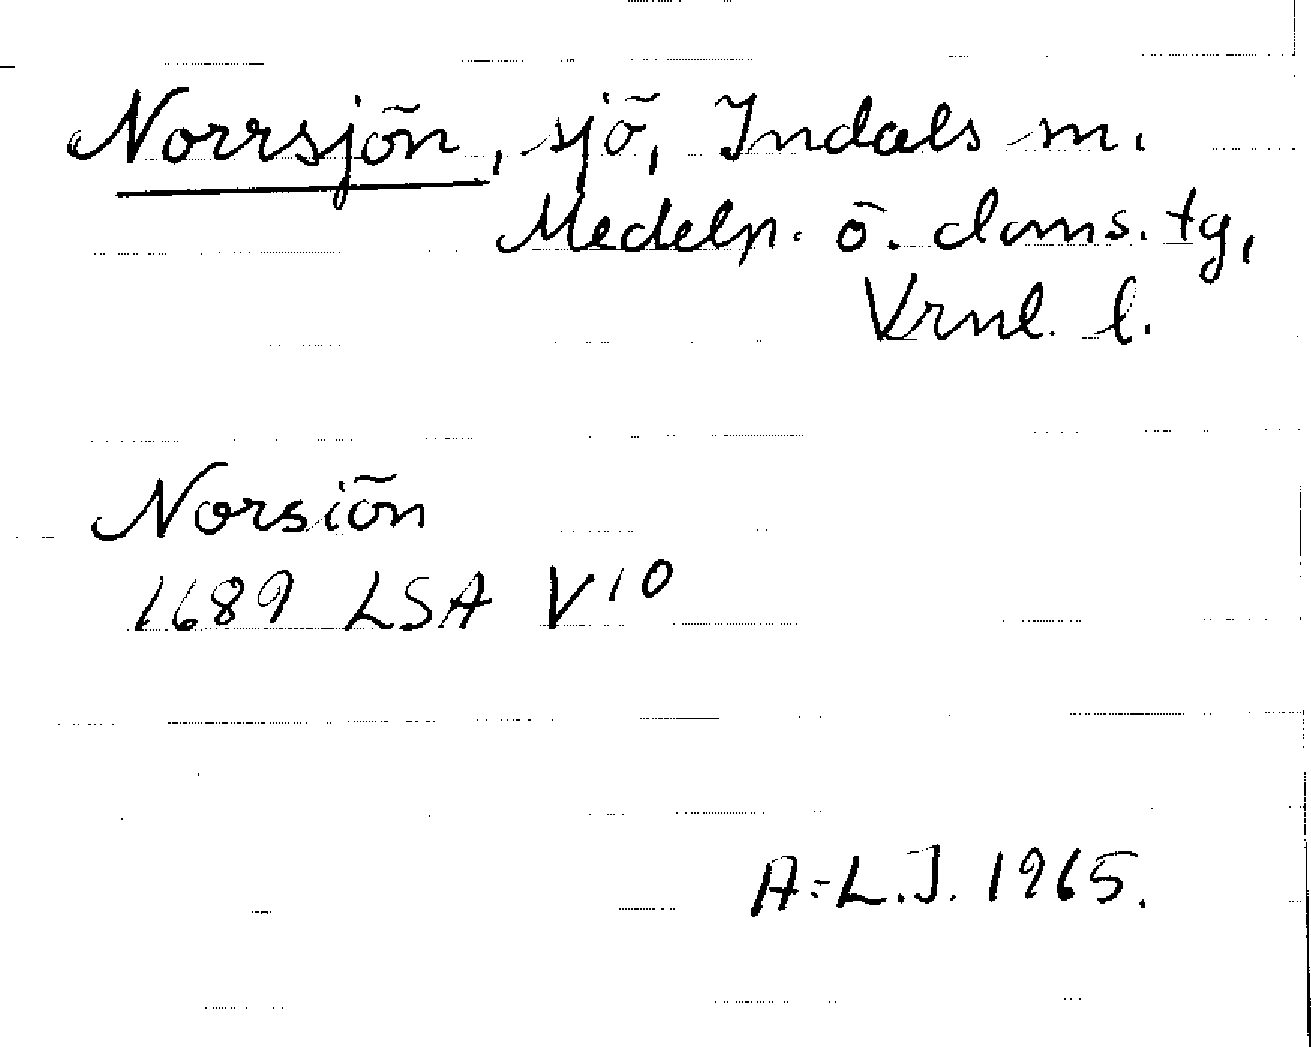 Norrsjön, sjö, Indals sn.
Medelp. ö. doms. tg,
Vrnl. l.
Norsiön
1689 LSA V 10
A-L.J. 1965.